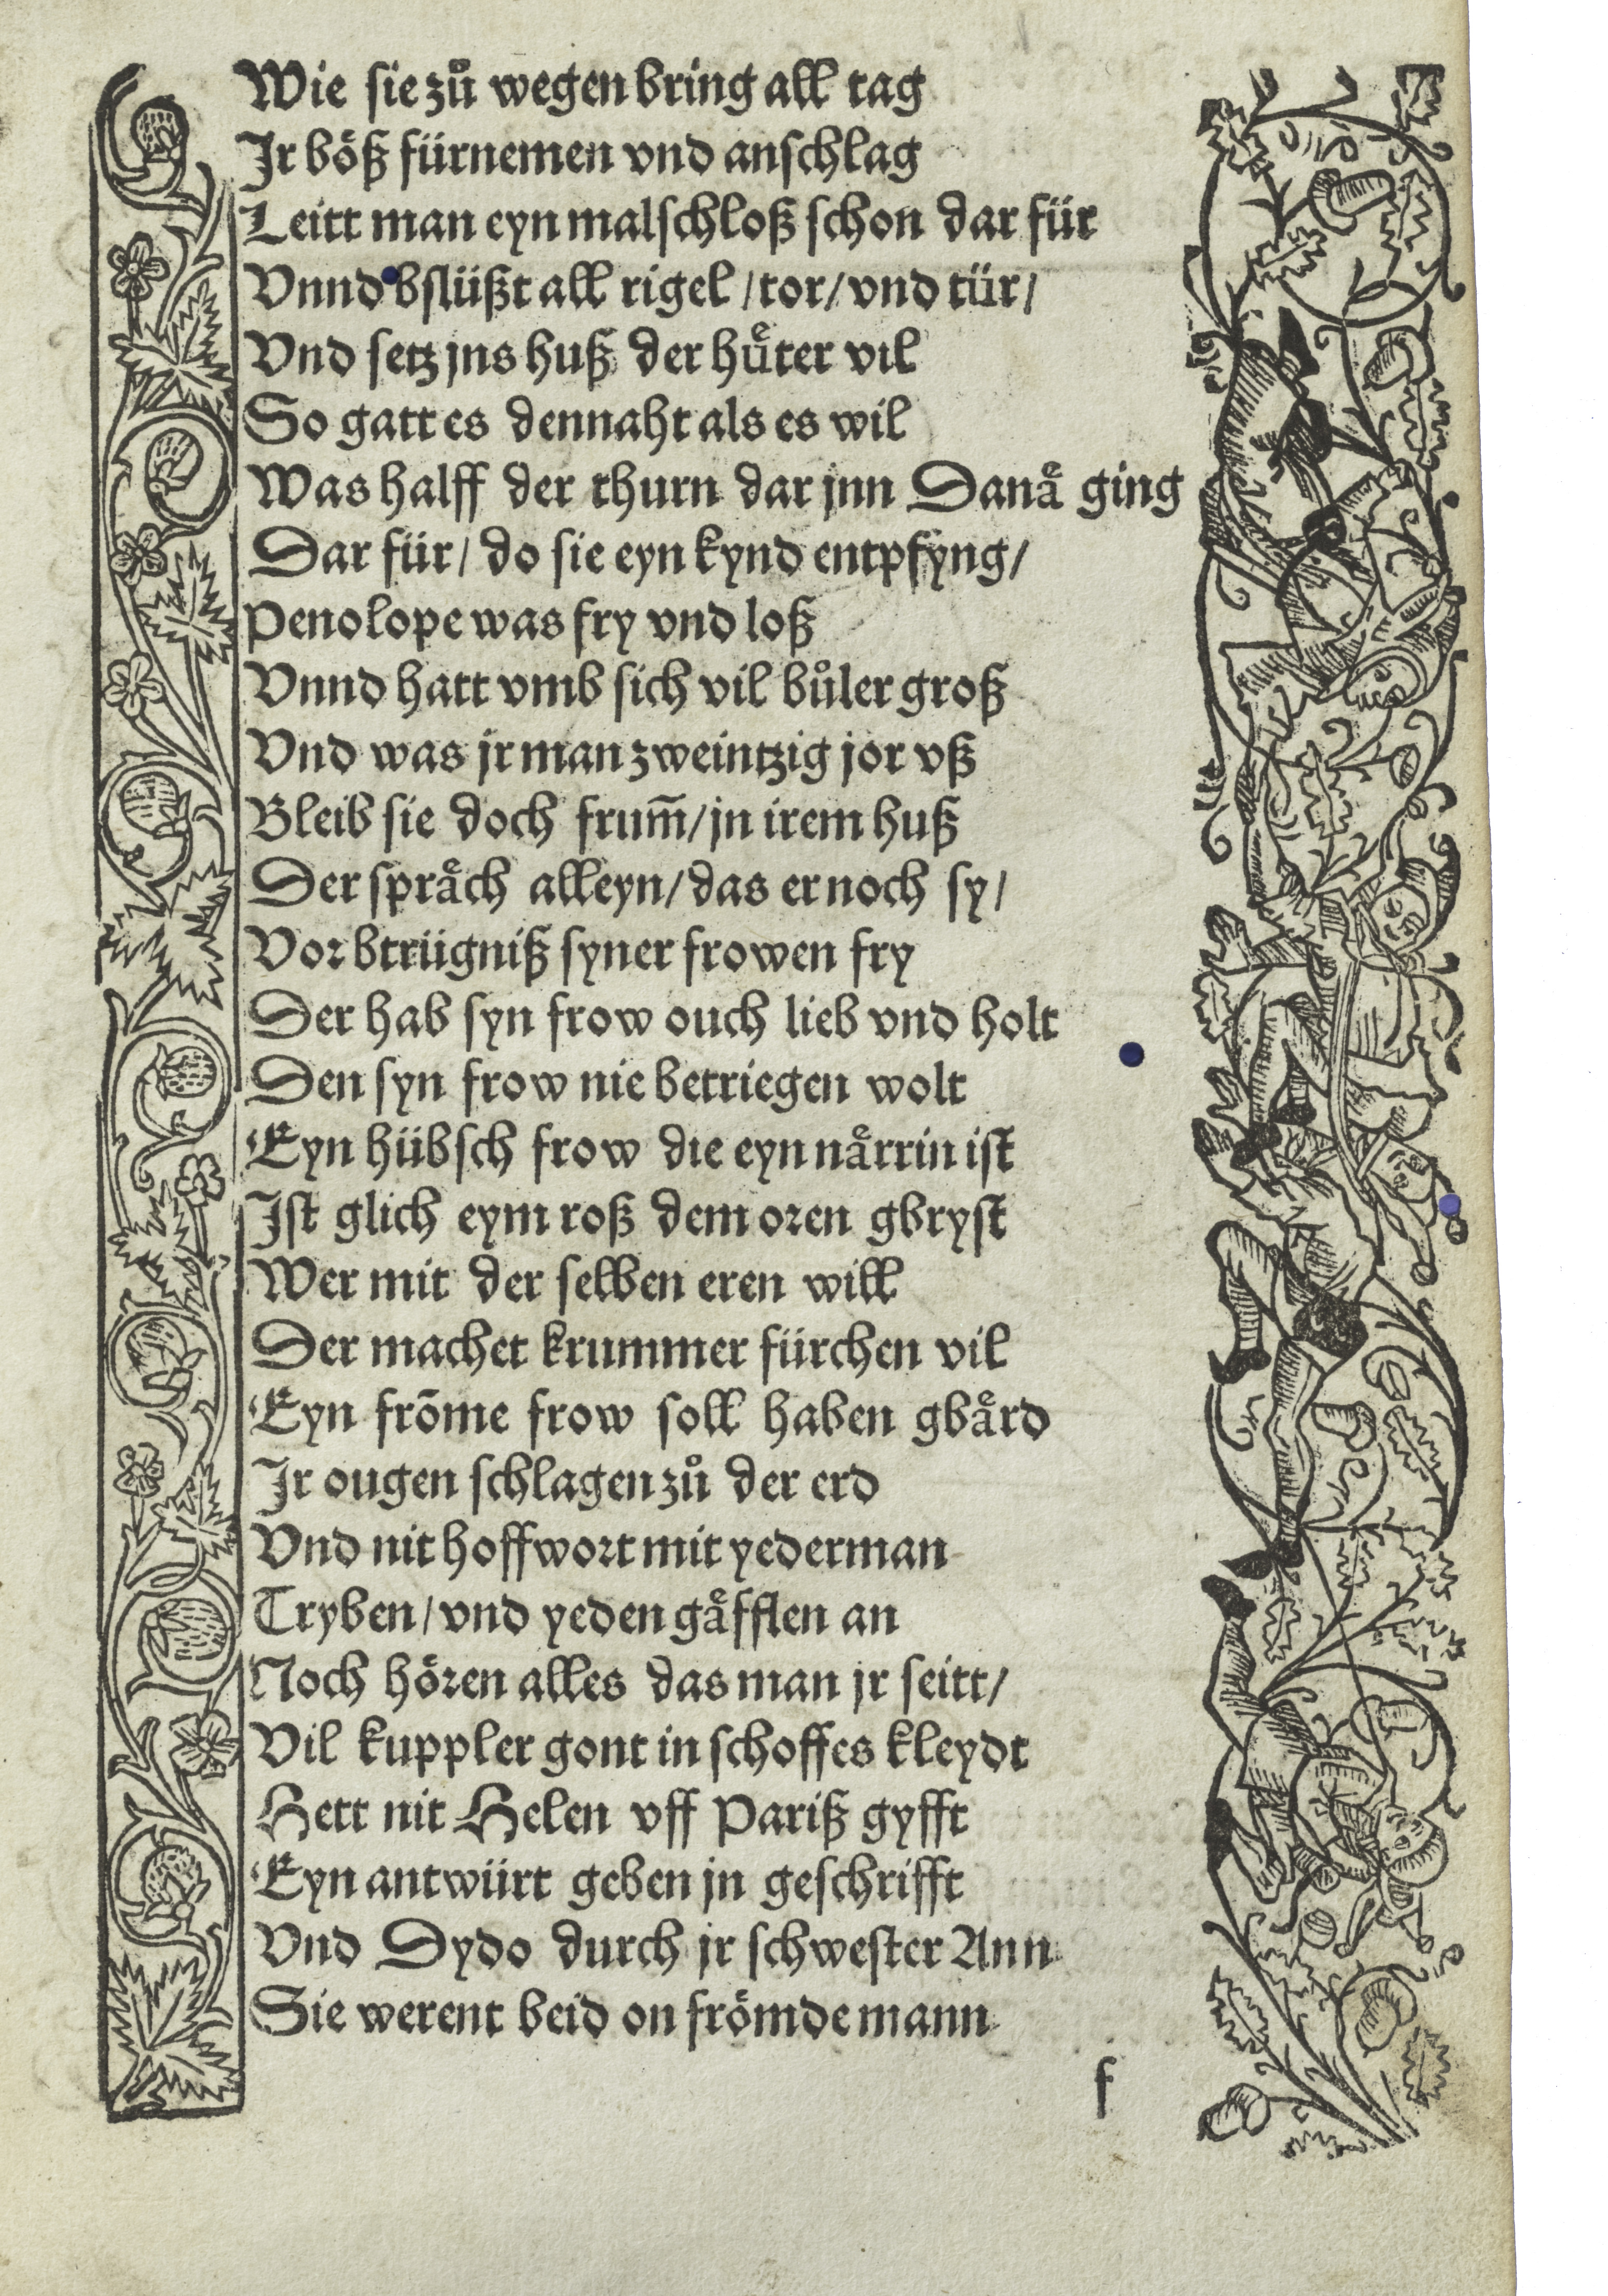 Wie sie zuͦ wegen bring all tag
Jr boͤß fürnemen vnd anschlag
Leitt man eyn malschloß schon dar für
Vnnd bslüßt all rigel / tor / vnd tür /
Vnd setz jns huß der huͤter vil
So gatt es dennaht als es wil
Was halff der thurn dar jnn Danaͤ ging
Dar für / do sie eyn kynd entpfyng /
Penolope was fry vnd loß
Vnnd hatt vmb sich vil buͦler groß
Vnd was jr man zweintzig jor vß
Bleib sie doch frum̄ / jn irem huß
Der spraͤch alleyn / das er noch sy /
Vor btrügniß syner frowen fry
Der hab syn frow ouch lieb vnd holt
Den syn frow nie betriegen wolt
Eyn hübsch frow die eyn naͤrrin ist
Jst glich eym roß dem oren gbryst
Wer mit der selben eren will
Der machet krummer fürchen vil
Eyn frōme frow soll haben gbaͤrd
Jr ougen schlagen zuͦ der erd
Vnd nit hoffwort mit yederman
Tryben / vnd yeden gaͤfflen an
Noch hoͤren alles das man jr seitt /
Vil kuppler gont in schoffes kleydt
Hett nit Helen vff Pariß gyfft
Eyn antwürt geben jn geschrifft
Vnd Dydo durch jr schwester Ann
Sie werent beid on froͤmde mann
f